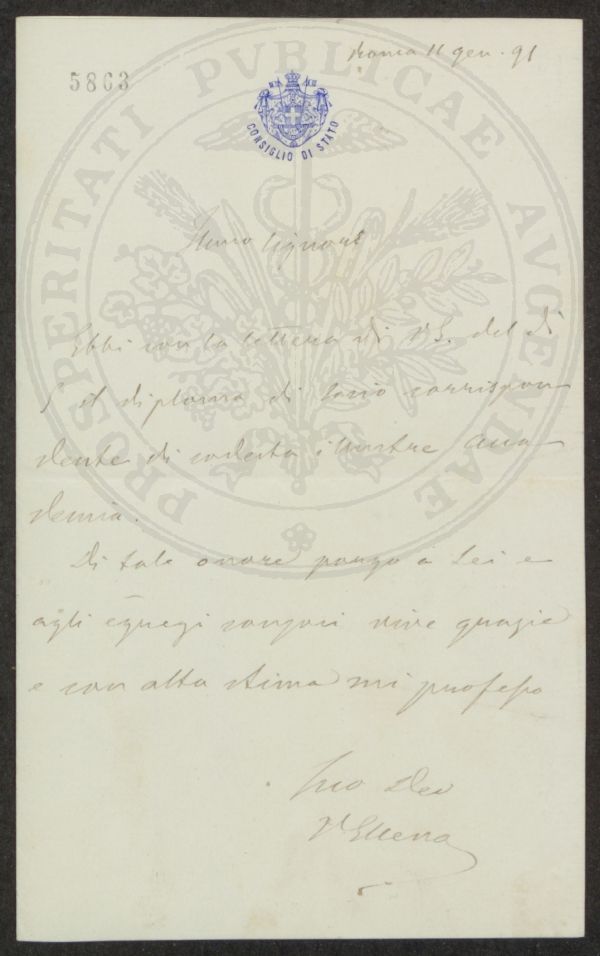 Roma 11 gen. 91
5863
CONSIGLIO DI STATO
PROSPERITATI PVBLICAE AVGENDAE
Signore
Ebbi con la lettera di V.S. del dì
5 il diploma di socio corrispon
dente di codesta illustre acca
demia.
Di tale onore porgo a Lei e
agli egregi vive grazie
e con alta stima mi professo
Suo Dev
V Ellena